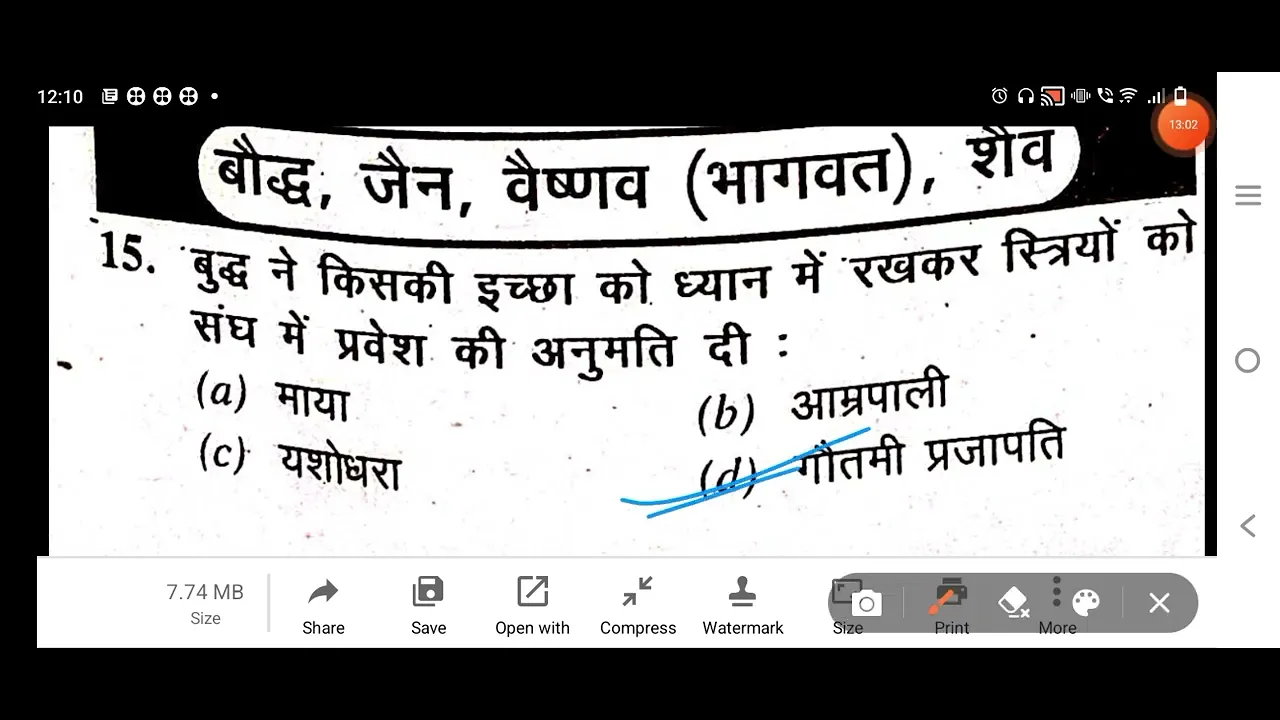 12:10
13:02
बौद्ध, जैन, वैष्णव (भागवत), शैव
15. बुद्ध ने किसकी इच्छा को ध्यान में रखकर स्त्रियों को
संघ में प्रवेश की अनुमति दी :
(a) माया
(b) आम्रपाली
(c) यशोधरा
(d) गौतमी प्रजापति
7.74 MB
Size
Share
Save
Open with
Compress
Watermark
Size
Print
More